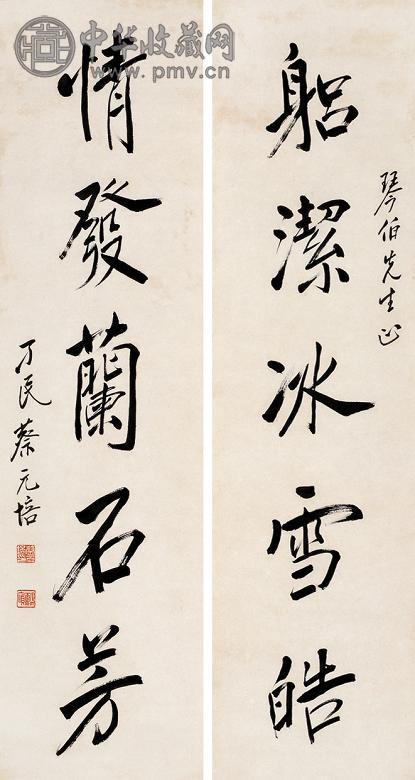 中华收藏网
www.pmv.cn
琴伯先生正
躳潔冰雪皓
情發蘭石芳
孑民蔡元培